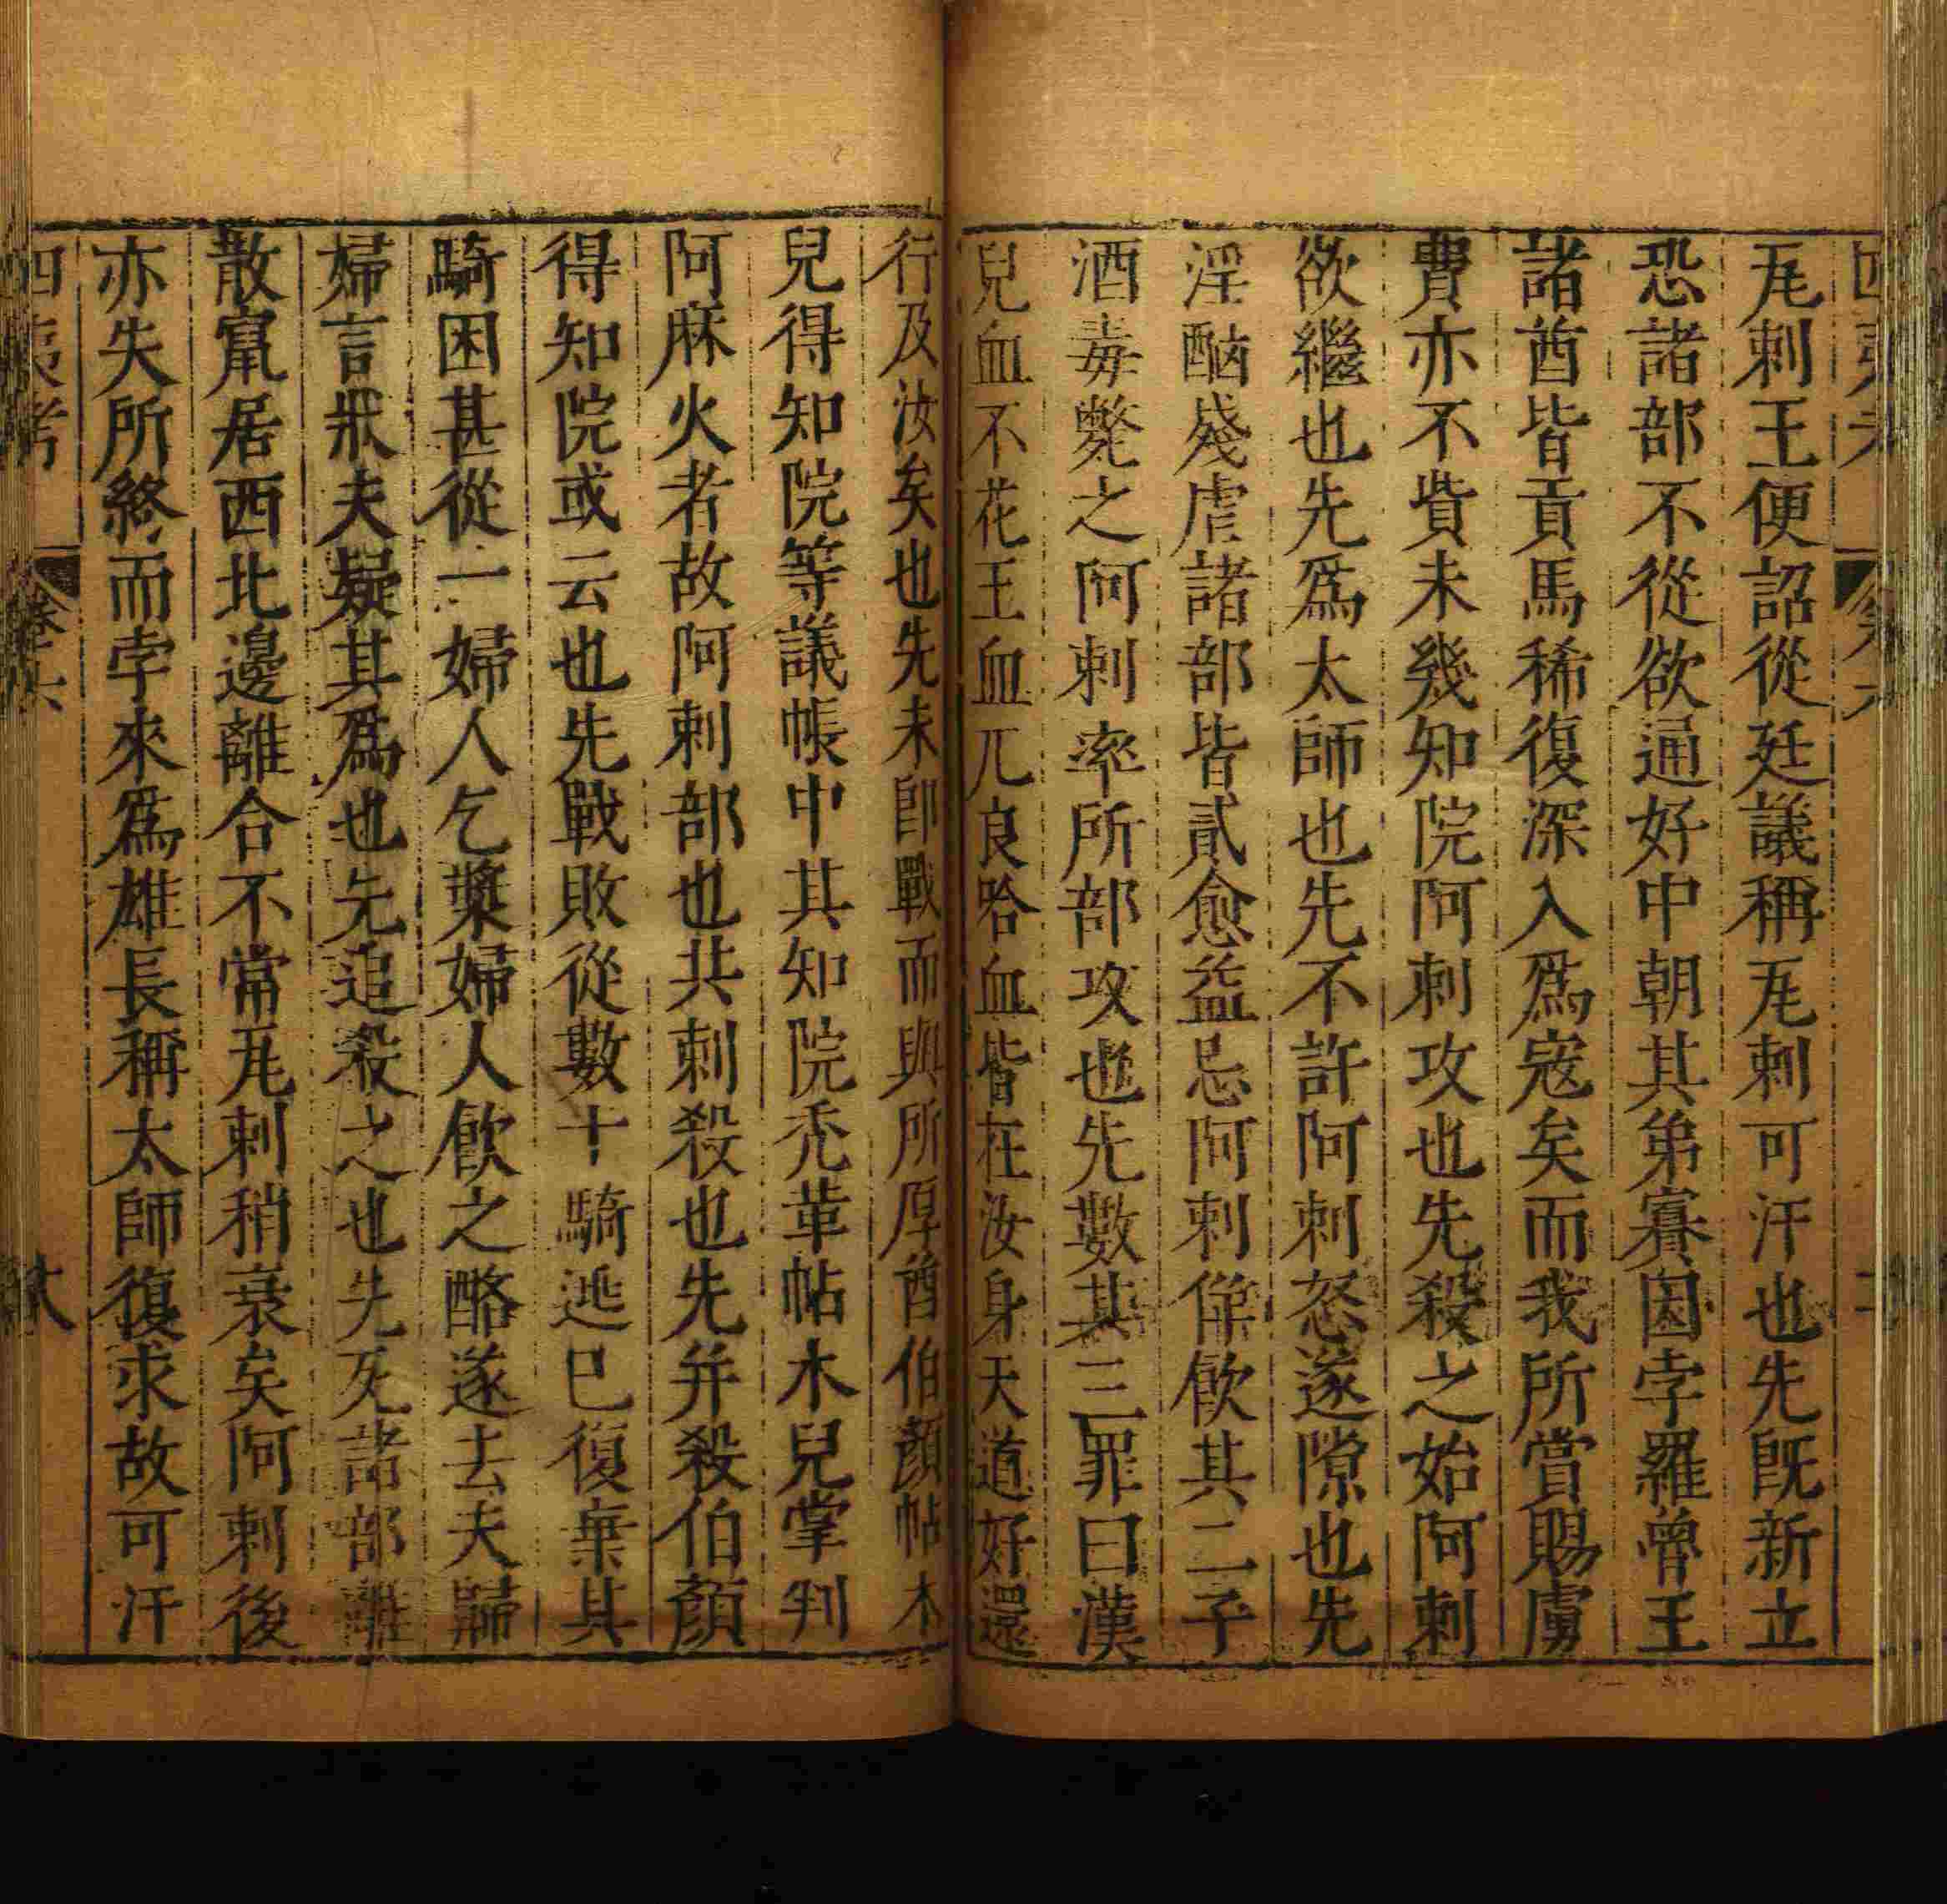 瓦剌王便詔從廷議稱瓦剌可汗也先既新立
恐諸部不從欲通好中朝其弟賽因孛羅曾王
諸酋皆貢馬稀復深入爲寇矣而我所賞賜虜
費亦不貲未幾知院阿剌攻也先殺之始阿剌
欲繼也先爲太師也先不許阿剌怒遂隙也先
淫酗殘虐諸部皆貳愈益忌阿剌僱飲其二子
酒毒斃之阿剌率所部攻也先數其三罪曰漢
兒血不花王血兀良哈血皆在汝身天道好還
行及汝矣也先未卽戰而與所厚酋伯顏帖木
兒得知院等議帳中其知院禿革帖木兒掌判
阿麻火者故阿剌部也共剌殺也先并殺伯顏
得知院或云也先戰敗從數十騎逃已復棄其
騎困甚從一婦人乞漿婦人飲之酪遂去夫歸
婦言狀夫疑其爲也先追殺之也先死諸部離
散窜居西北邊離合不常瓦剌稍衰矣阿剌後
亦失所終而孛來爲雄長稱太師復求故可汗
四夷考
卷六